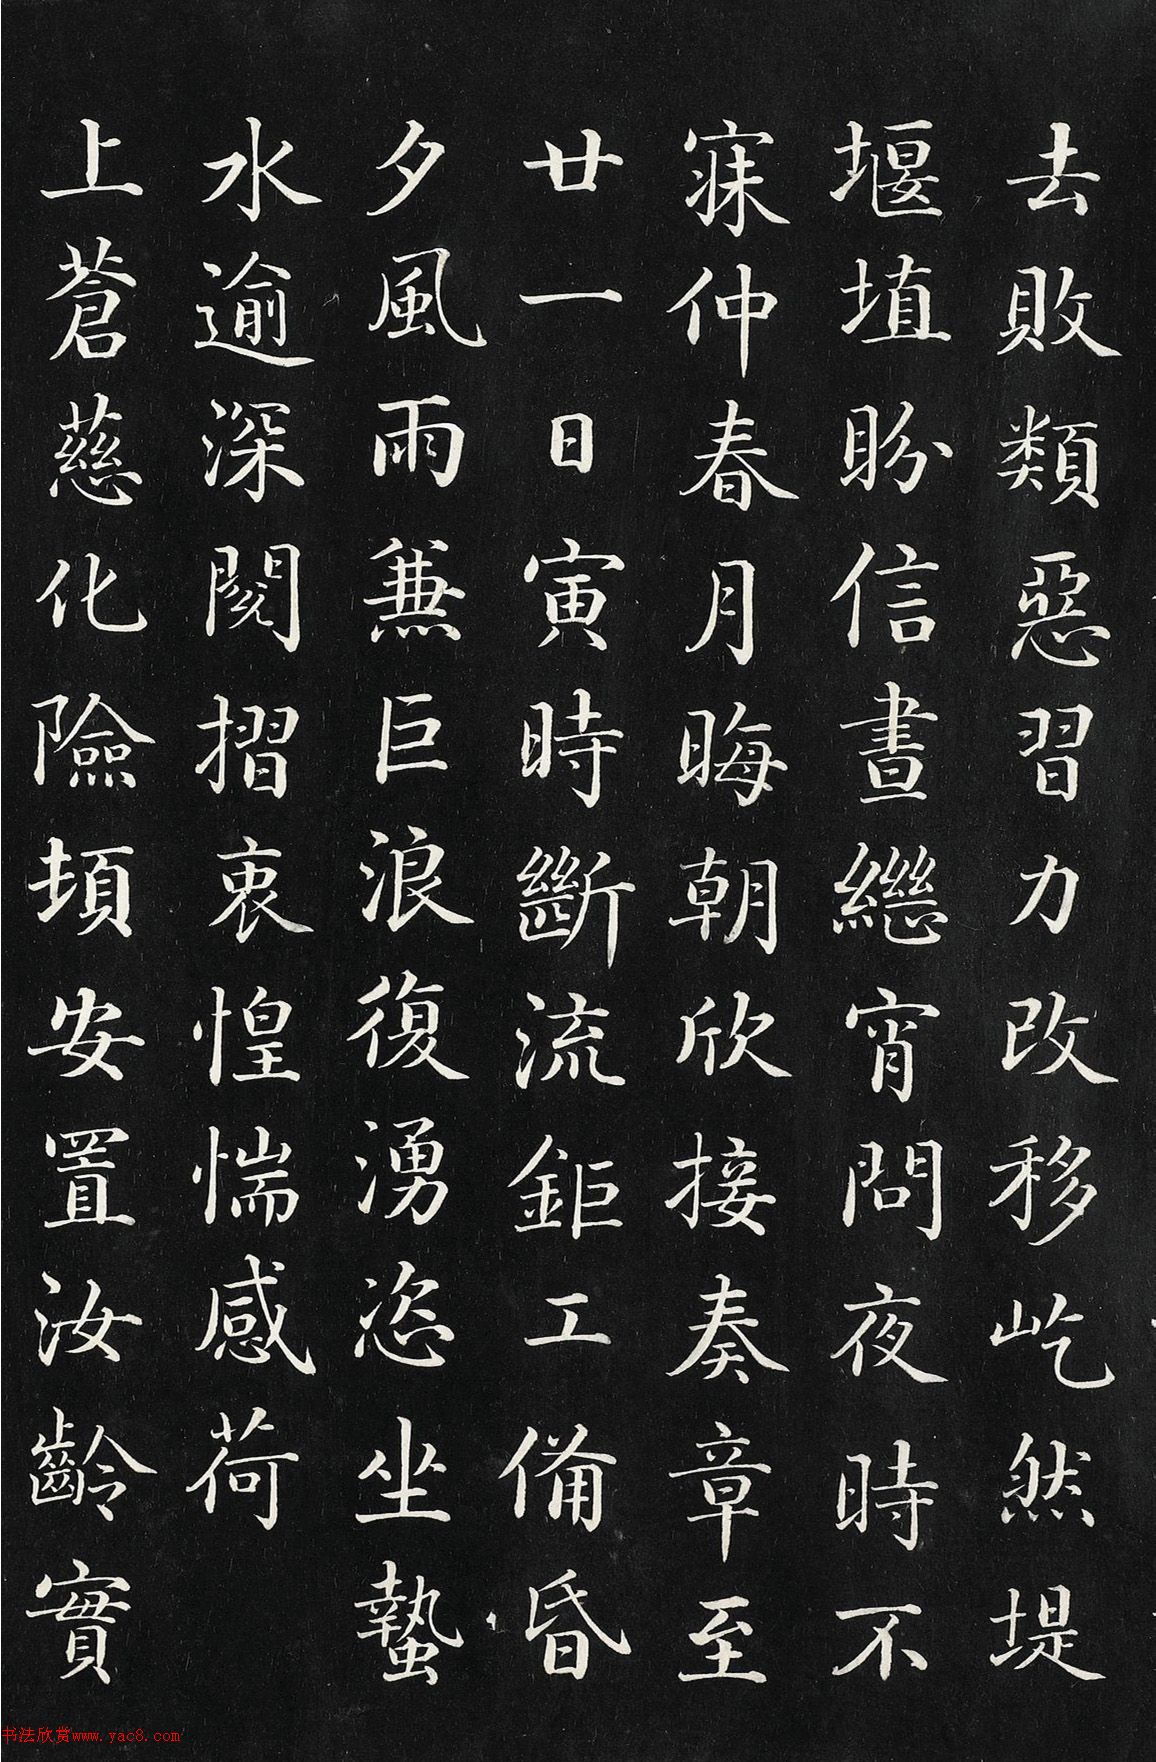 去敗類惡習力改移屹然堤
堰埴盼信晝繼宵問夜時不
寐仲春月晦朝欣接奏章至
廿一日寅時斷流鉅工備昏
夕風雨兼巨浪復湧恣坐蟄
水逾深閱摺衷惶惴感荷
上蒼慈化險頃安置汝齡實
书法欣赏www.yac8.com